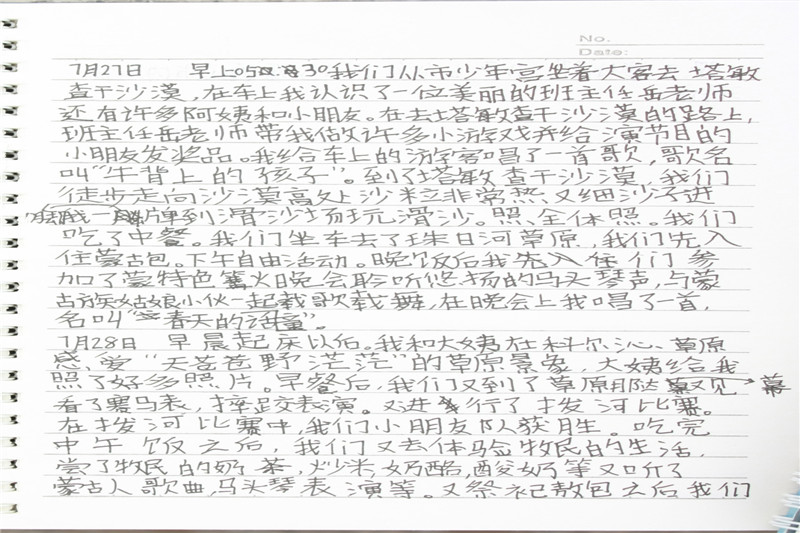 No.
Date:
7月27日 早上05:30我们从市少年宫坐着大客去塔敏
查干沙漠,在车上我认识了一位美丽的班主任岳老师
还有许多阿姨和小朋友。在去塔敏查干沙漠的路上,
班主任岳老师带我做许多小游戏并给演节目的
小朋友发奖品。我给车上的游客唱了一首歌,歌名
叫"牛背上的孩子"。到了塔敏查干沙漠,我们
徒步走向沙漠高处沙粒非常热又细沙子进
到滑沙场玩滑沙。照全体照。我们
吃了中餐。我们坐车去了珠日河草原,我们先入
住蒙古包。下午自由活动。晚饭后我先入住们参
加了蒙特色篝火晚会聆听悠扬的马头琴声,与蒙
古族姑娘小伙一起载歌载舞,在晚会上我唱了一首,
名叫"春天的话童"。
7月28日 早晨起床以后。我和大姨在科尔沁、草原
感受"天苍苍野茫茫"的草原景象,大姨给我
照了好多照片。早餐后,我们又到了草原那达又见 幕
看了赛马表,摔跤表演。又进行了拔河比赛。
在拔河比赛中,我们小朋友队获胜。吃完
中午饭之后,我们又去体验牧民的生活,
尝了牧民的奶茶,炒米,奶酪,酸奶等又听了
蒙古人歌曲,马头琴表演等。又祭祀敖包之后我们